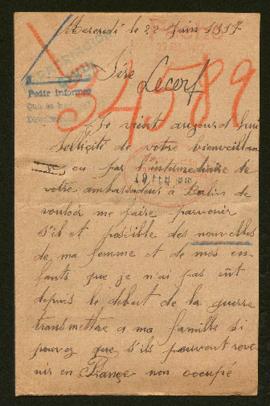 Mercredi le 22 Juin 1917
Sire Lecerf
34589
Pedir informes
Je vient aujourd'hui
sollicité de votre bienveillan
ou par l'intermédiaire de
votre ambassadeur à Berlin de
vouloir me faire parvenir
s'il est possible des nouvelles
de ma femme et de mes en-
fants que je n'ai pas eût
depuis le début de la guerre
transmettre a ma famille si
pouvez que s'ils peuvent reve
nir en France non occupé